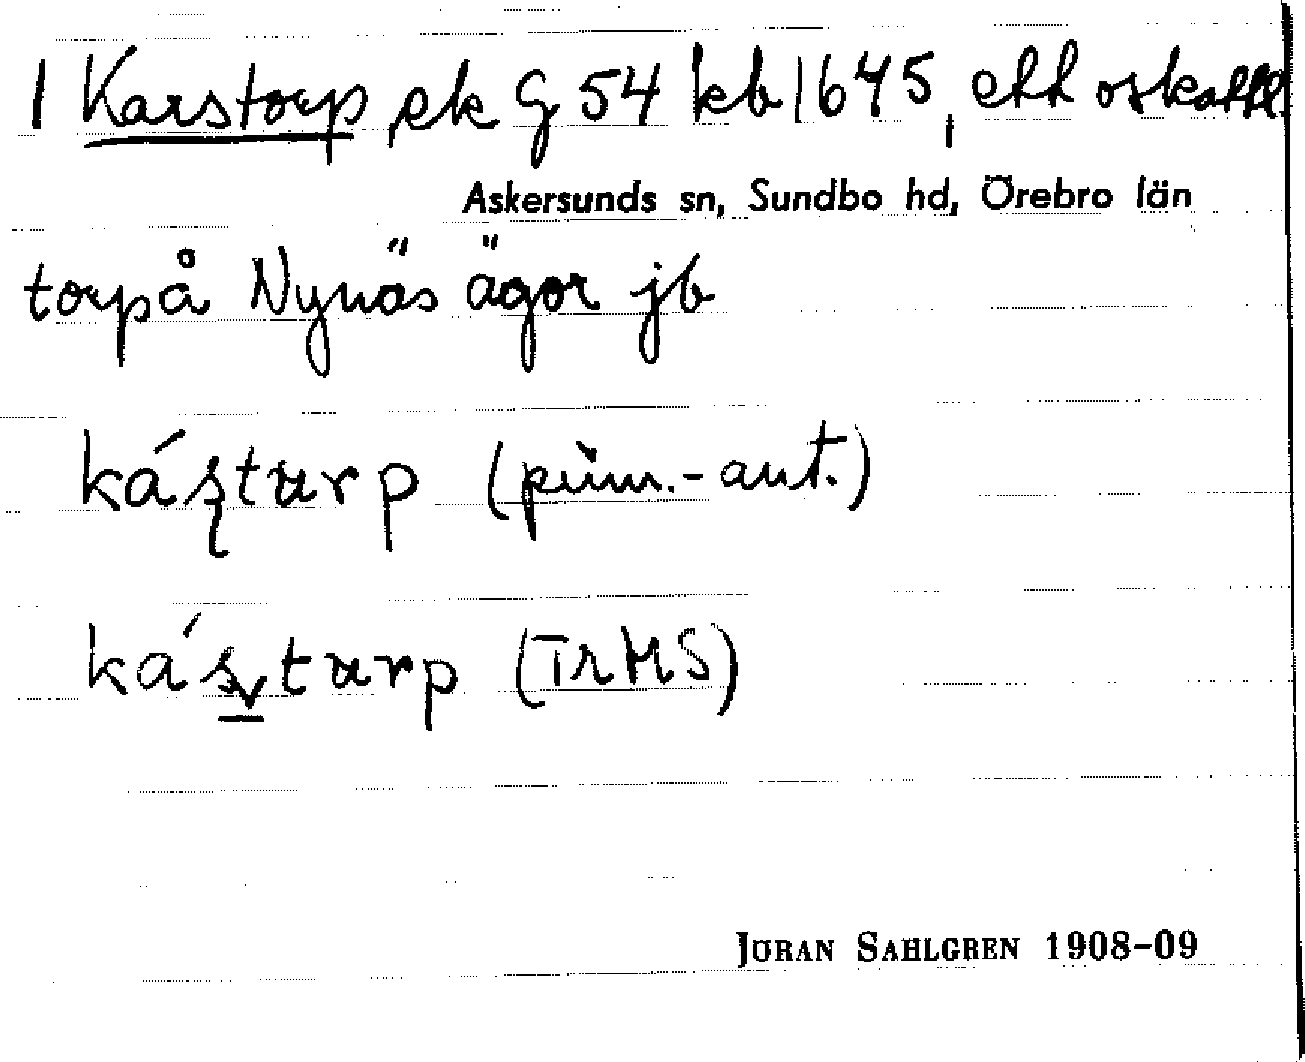 1 Karstorp ek G 54 kb 1645, ett oskattl.
Askersunds sn, Sundbo hd, Örebro län
torp å Nynäs ägor jb
káȿturp (prim.-ant.)
kásturp (TRMS)
JÖRAN SAHLGREN 1908-09